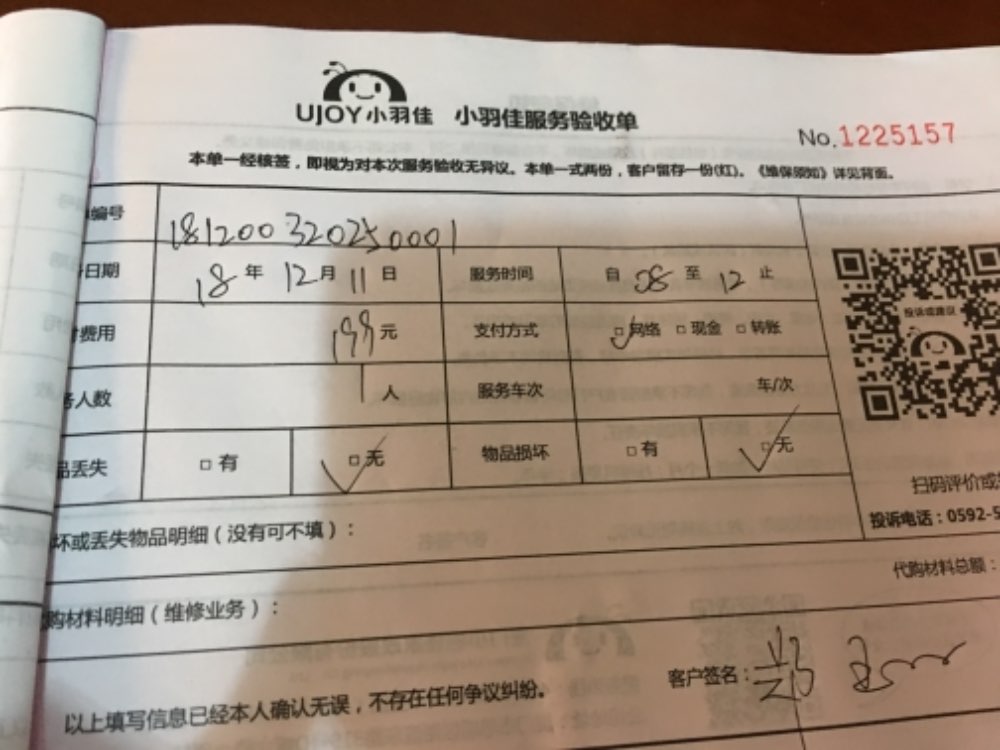 UJOY小羽佳 小羽佳服务验收单
No.1225157
本单一经核签，即视为对本次服务验收无异议。本单一式两份，客户留存一份(红)。《维保须知》详见背面。
编号 181200320250001
日期 18 年 12 月 11 日 服务时间 自 08 至 12 止
费用 199 元 支付方式 □网络 □现金 □转账
人数 1 人 服务车次 车/次
品丢失 □有 □无 物品损坏 □有 □无
投诉或建议
扫码评价或
投诉电话：0592-5
坏或丢失物品明细（没有可不填）：
代购材料总额：
购材料明细（维修业务）：
客户签名：郑
以上填写信息已经本人确认无误，不存在任何争议纠纷。